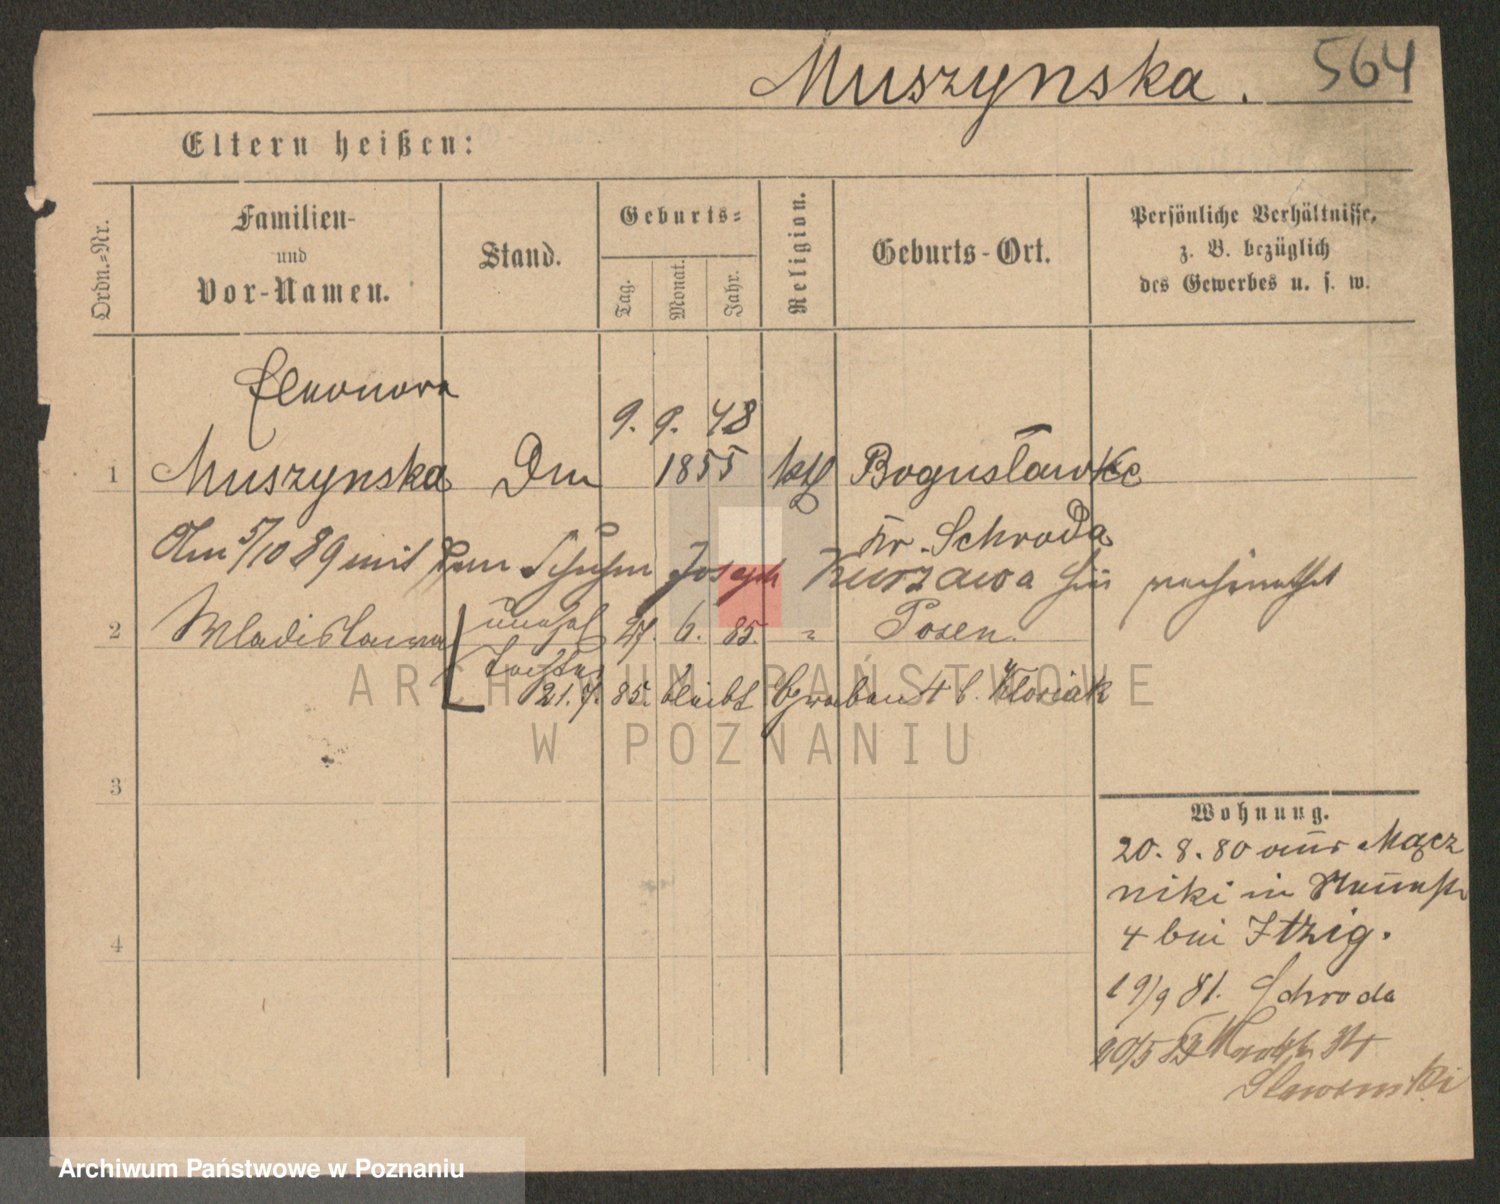 Muszynska. 564
Eltern heißen:
Ordn.-Nr.
Familien-
und
Vor-Namen.
Stand.
Geburts-
Tag.
Monat.
Jahr.
Religion.
Geburts-Ort.
Persönliche Verhältnisse,
z. B. bezüglich
des Gewerbes u. s. w.
Eleonora
9. 9. 48
1 Muszynska 1855 kth Bogusławke
Kr. Schroda
Am 5/10 89 mit dem Schuhm Joseph Kurzawa hier verheirathet
2 Wladislawa unehel 27. 6. 85. " Posen.
Tochter
21. 7. 85. bleibt Graben 4 b. Kłosiak
3
4
Wohnung.
20. 8. 80 aus Mącz
niki in
4 bei Itzig.
19/9 81. Schroda
20/5
Slawenski
ARCHIWUM PAŃSTWOWE
W POZNANIU
Archiwum Państwowe w Poznaniu